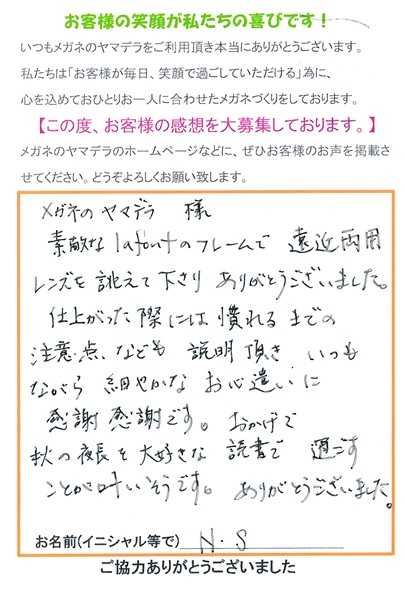 お客様の笑顔が私たちの喜びです！
いつもメガネのヤマデラをご利用頂き本当にありがとうございます。
私たちは「お客様が毎日、笑顔で過ごしていただける」為に、
心を込めておひとりお一人に合わせたメガネづくりをしております。
【この度、お客様の感想を大募集しております。】
メガネのヤマデラのホームページなどに、ぜひお客様のお声を掲載さ
せてください。どうぞよろしくお願い致します。
メガネのヤマデラ 様
素敵なlafontのフレームで 遠近両用
レンズを誂えて下さり ありがとうございました。
仕上がった際には慣れるまでの
注意点なども 説明頂き いつも
ながら 細やかな お心遣いに
感謝感謝です。 おかげで
秋の夜長を大好きな 読書で 過ごす
ことが叶いそうです。 ありがとうございました。
お名前(イニシャル等で) N・S
ご協力ありがとうございました